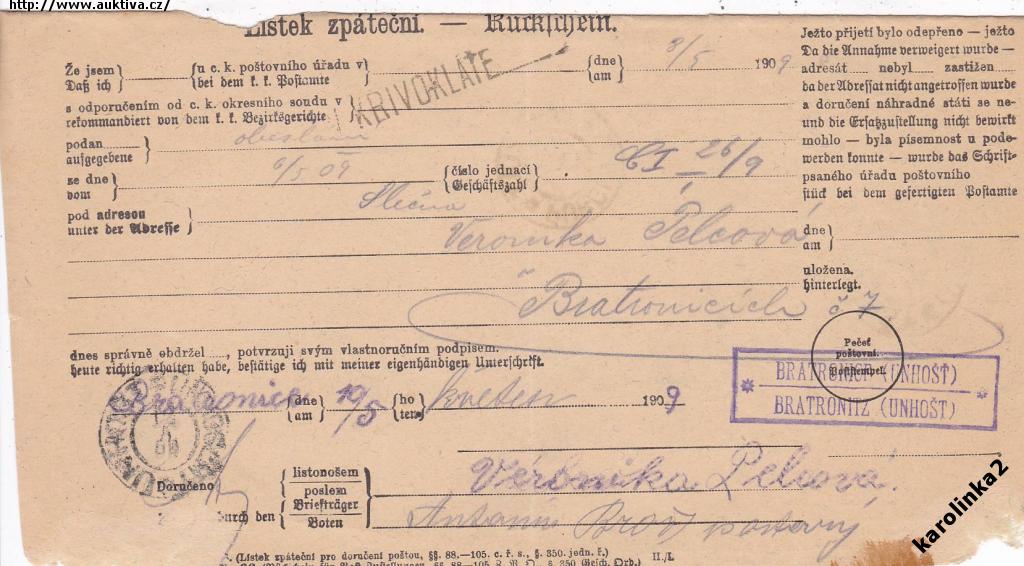 http://www.auktiva.cz/
Lístek zpáteční. — Rückschein.
Že jsem u c. k. poštovního úřadu v KŘIVOKLÁTĚ dne 8/5 1909
Daß ich bei dem k. k. Postamte am
s odporučením od c. k. okresního soudu v
rekommandiert von dem k. k. Bezirksgerichte
podan obeslání
aufgegebene
ze dne 6/5 09 číslo jednací CI 26/9
vom Geschäftszahl
pod adresou Slečna
unter der Adresse
Veronika Pelcová
Bratronicích č 7
dnes správně obdržel, potvrzuji svým vlastnoručním podpisem.
heute richtig erhalten habe, bestätige ich mit meiner eigenhändigen Unterschrift.
Bratronice dne 19/5 ho květen 1909
am ten
Veronika Pelcová
Doručeno listonošem
poslem
durch den Briefträger Antonín Brož
Boten
A. (Lístek zpáteční pro doručení poštou, §§. 88.—105. c. ř. s., §. 350. jedn. ř.) II./L
Ježto přijetí bylo odepřeno — ježto
Da die Annahme verweigert wurde —
adresát nebyl zastižen
da der Adressat nicht angetroffen wurde
a doručení náhradné státi se ne-
und die Ersatzzustellung nicht bewirkt
mohlo — byla písemnost u pode-
werden konnte — wurde das Schrift-
psaného úřadu poštovního
stück bei dem gefertigten Postamte
dne
am
uložena.
hinterlegt.
Pečeť
poštovní.
Poststempel.
BRATRONICE (UNHOŠŤ)
BRATRONITZ (UNHOŠT)
karolinka2